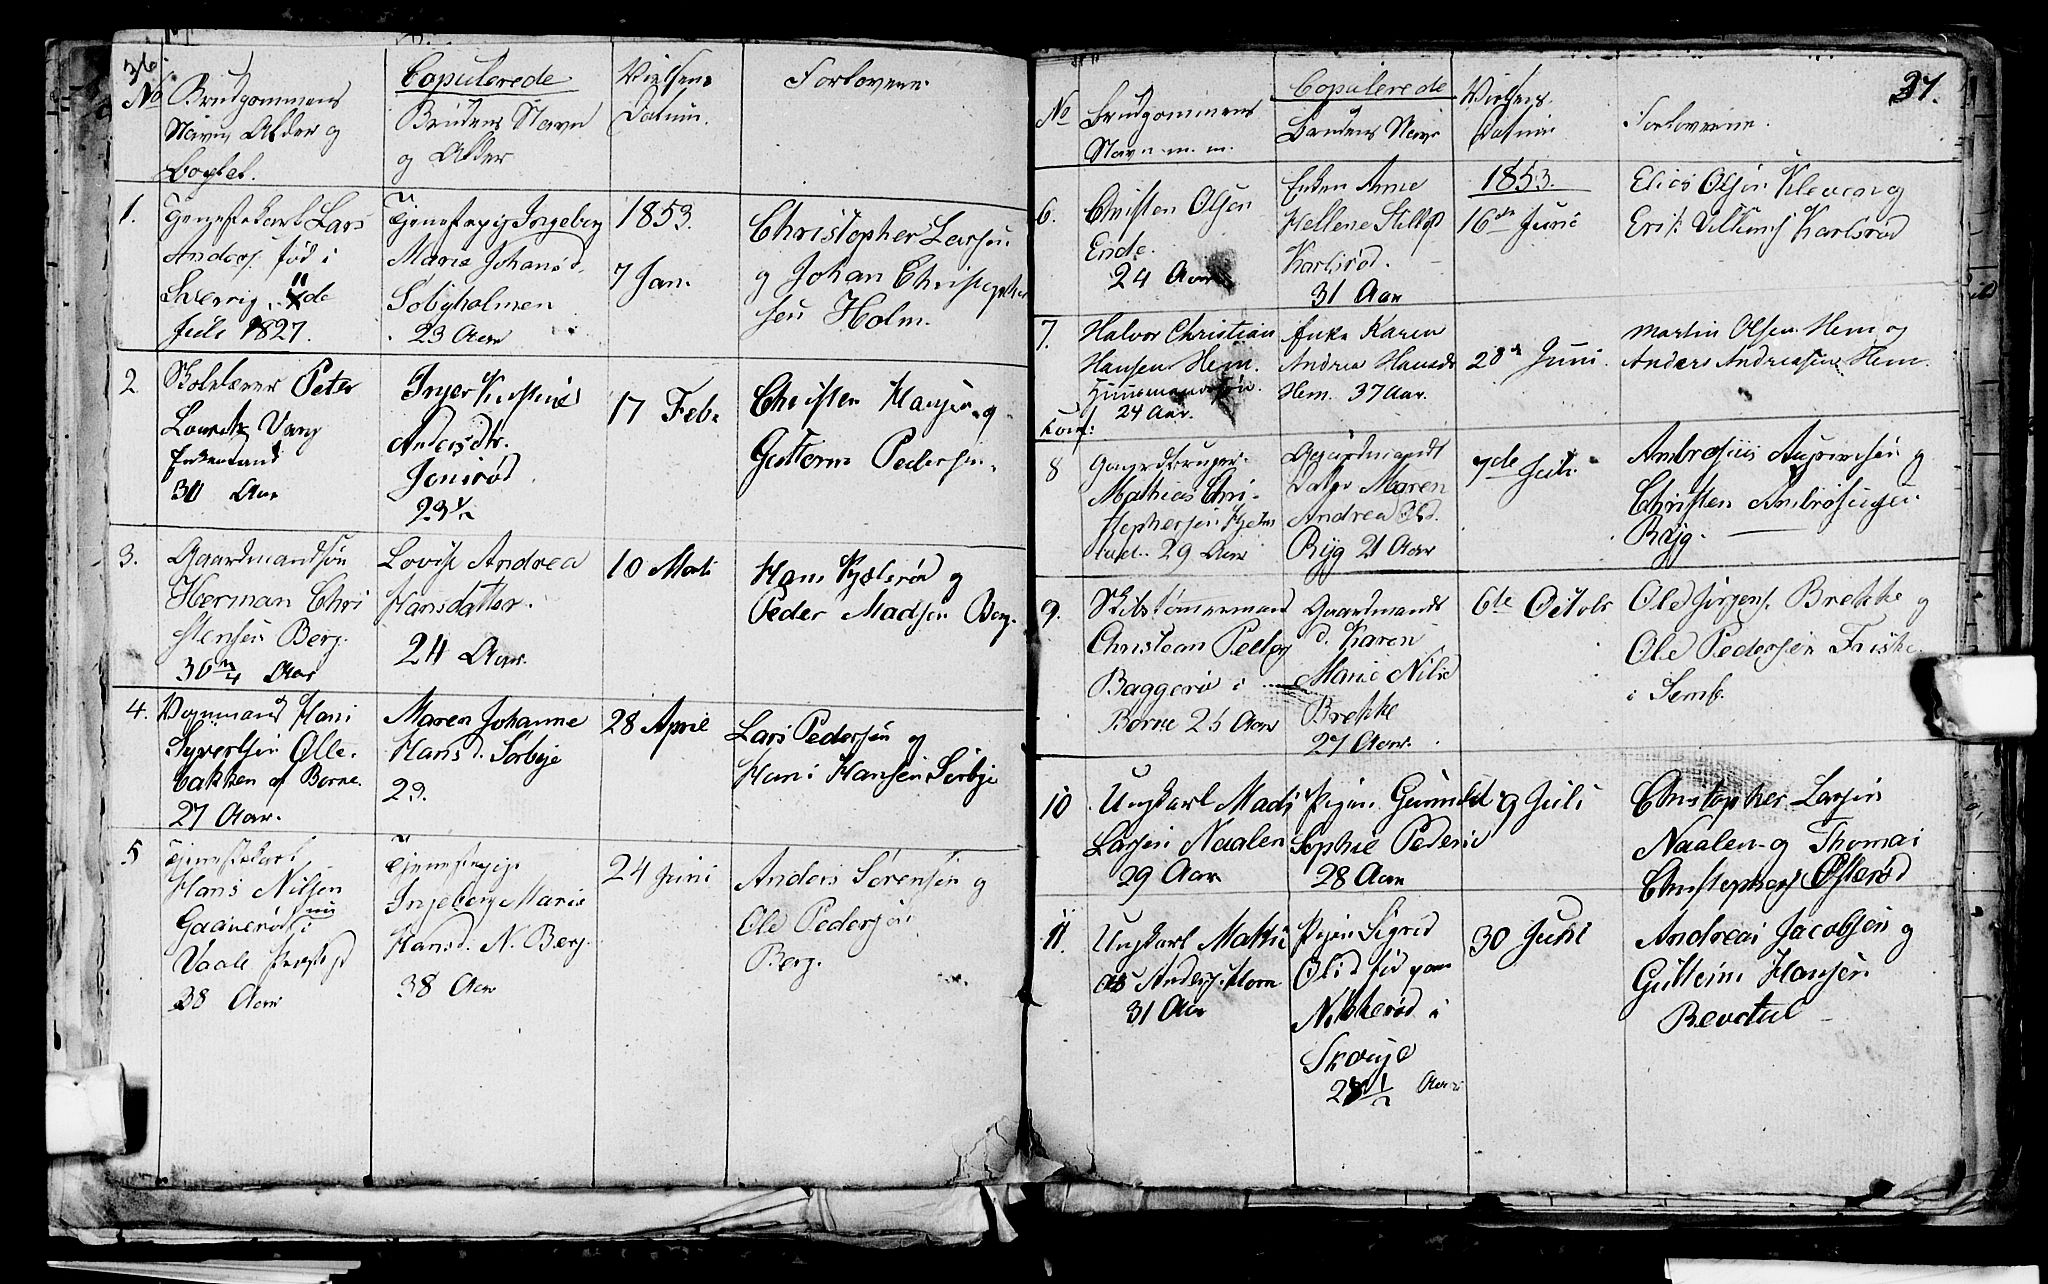 36.
No
Brudgommens
Navn, Alder og
Bopæl.
Copulerede
Brudens Navn
og Alder
Vielsens
Datum.
Forlovere.
1.
Tjenestekarl Lars
Anders. fød i
Sverrig, 11 de
Juli 1827.
Tjenestepig Ingeborg
Marie Johansd.
Søbyholmen
23 Aar
1853.
7 Jan.
Christopher Larsen
og Johan Christopher
sen Holm.
2.
Skolelærer Peter
Lauritz Vang
Enkemand
30 Aar
Inger Kirstine
Andersdtr.
Jonsrød
23½
17 Feb.
Christen Hansen og
Guttorm Pedersen.
3.
Gaardmandssøn
Herman Chri
stensen Berg.
30 Aar
Lovise Andrea
Hansdatter.
24 Aar.
10 Marts
Hans og
Peder Madsen Berg.
4.
Hans
Syvertsen Olle-
bakken af Borre.
27 Aar.
Maren Johanne
Hansd. Sørbye
29.
28 April
Lars Pedersen og
Hans Hansen Sørbye
5
Tjenestekarl
Hans Nilsen
i
Vaale Præstegd
38 Aar
Tjenestepige
Ingeborg Marie
Hansd. N. Berg.
38 Aar
24 Juni
Anders Sørensen og
Ole Pedersen
Berg.
37.
No
Brudgommens
Navn m. m.
Copulerede
Brudens Navn
Vielsens
Datum
Forloverne.
6.
Christen Olsen
Ende.
24 Aar
Enken Anne
Hellene
Karlsrød.
31 Aar
1853.
16de Juni
Elias Olsen Klevan og
Erik Karlsrød
7.
Halvor Christian
Hansen Hem.
Huusmandssøn.
24 Aar.
Enke Karen
Andrea Hansd.
Hem. 37 Aar.
28de Juni.
Martin Olsen Hem og
Anders Andreasen Hem.
8
Gaardbruger
Mathias Chri-
stophersen
29 Aar
Gaardmands
Datter Maren
Andrea
Ryg 21 Aar
7de Juli
Ambrosius og
Christen Ambrosius
Ryg.
9.
Skibstømmermand
Christian
i
Borre 25 Aar
Gaardmands
d. Karen
Marie Nilsd
Brekke
27 Aar.
6te Octobr
Ole Jørgens. Brekke og
Ole Pedersen Friske
i Semb.
10
Ungkarl Mads
Larsen Naalen
29 Aar
Pigen Gunnild
Sophie Pedersd
28 Aar
9 Juli
Christopher Larsen
Naalen og Thomas
Christophers Østerød
11.
Ungkarl Mathi
as Anders. Horn
31 Aar
Pigen Sigrid
Olsd fød paa
i
28½ Aar
30 Juli
Andreas Jacobsen og
Guttorm Hansen
Revetal